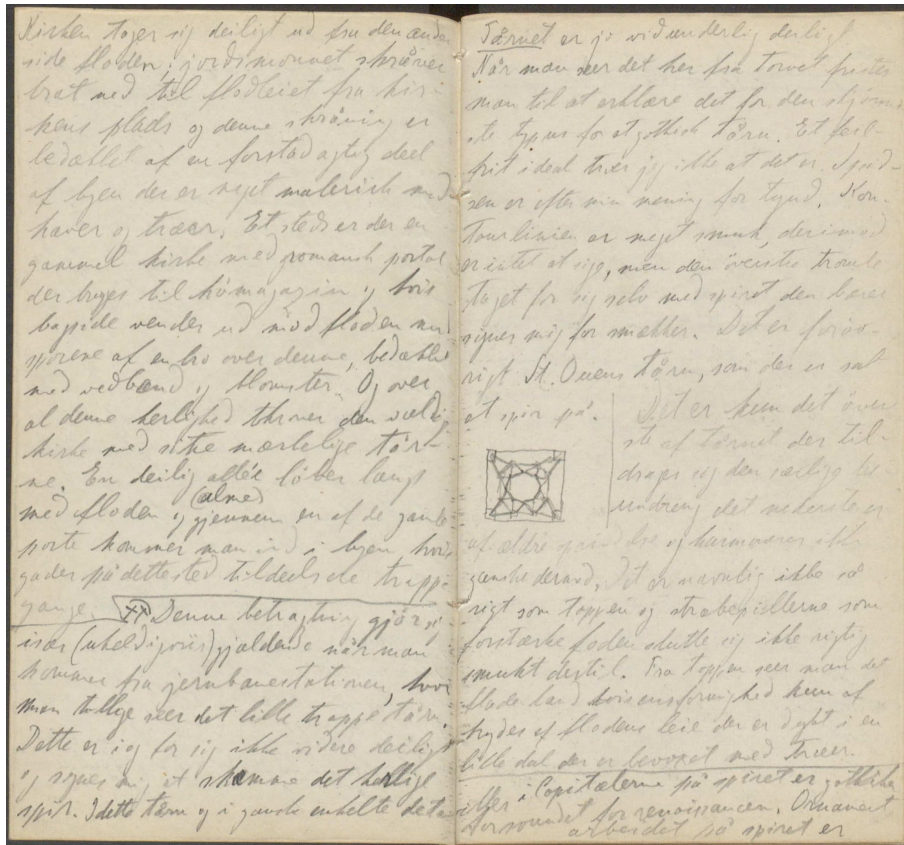 Kirken tager sig deiligt ud fra den anden
side floden; jordsmonnet skråner
brat ned til flodleiet fra kir-
kens plads og denne skråning er
bedækket af en forstadagtig deel
af byen der er meget malerisk med
haver og træer. Et steds er der en
gammel kirke med romansk portal
der bruges til hömagazin og hvis
bagside vender ud mod floden med
sporene af en bro over denne, bedækket
med vedbend og blomster. Og over
al denne herlighed throner den vældi
kirke med sine mærkelige tår-
ne. En deilig allée löber langs
(alme)
med floden og gjennem en af de gamle
porte kommer man ind i byen, hvis
gader på dette sted tildeels ere trappe-
gange. XX Denne betragtning gjör sig
især (uheldigviis) gjældende når man
kommer fra jernbanestationen, hvor
man tillige seer det lille trappetårn.
Dette er i og for sig ikke videre deiligt
og synes mig at skæmme det herlige
spir. I dette tårn og i ganske enkelte deta
Tårnet er jo vidunderlig deiligt.
Når man seer det her fra torvet fristes
man til at erklære det for den skjönne-
ste typus for et gothisk tårn. Et feil-
frit ideal troer jeg ikke at det er. Spid-
sen er efter min mening for tynd. Kon-
tourlinien er meget smuk, derimod
er intet at sige, men den överste tromle
taget for sig selv med spiret den bærer
synes mig for smækker. Det er foröv-
rigt St. Ouens tårn, som der er sat
et spir på.
Det er kun det över
ste af tårnet der til-
drager sig den særlige be
undring det nederste er
af ældre oprindelse og harmonerer ikke
ganske dermed. Det er navnlig ikke så
rigt som toppen og stræbepillerne som
forstærke floden slutte sig ikke rigtig
smukt dertil. Fra toppen seer man det
flade land hvis ensformighed kun af
brydes af flodens leie der er dybt i en
lille dal der er bevoxet med træer.
iller i Capitælerne på spiret er gothiken
forsvundet for renaissancen. Ornament
arbeidet på spiret er